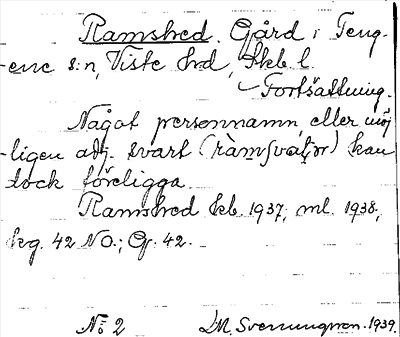 Ramshed. Gård i Teng-
ene s:n, Viste hrd, Skb. l.
Fortsättning.
Något personnamn, eller möj
-ligen adj. svart (ràmsvàt́ər) kan
dock föreligga.
Ramshed kb. 1937; ml. 1938;
kg. 42 NO.; Gr. 42.
No 2 D.M. Svenungsson. 1939.